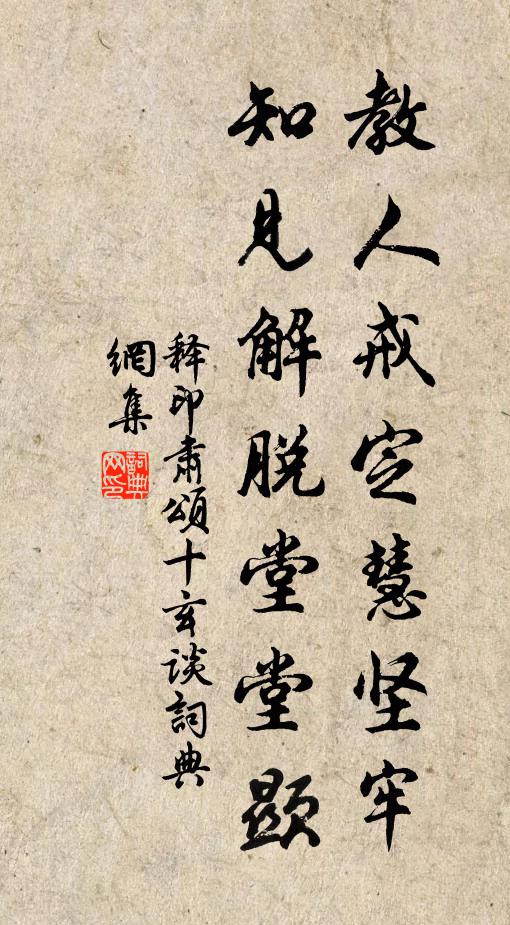 教人戒定慧坚牢
知见解脱堂堂顯
释印肃頌十玄談詞典
網集
詞典
网印